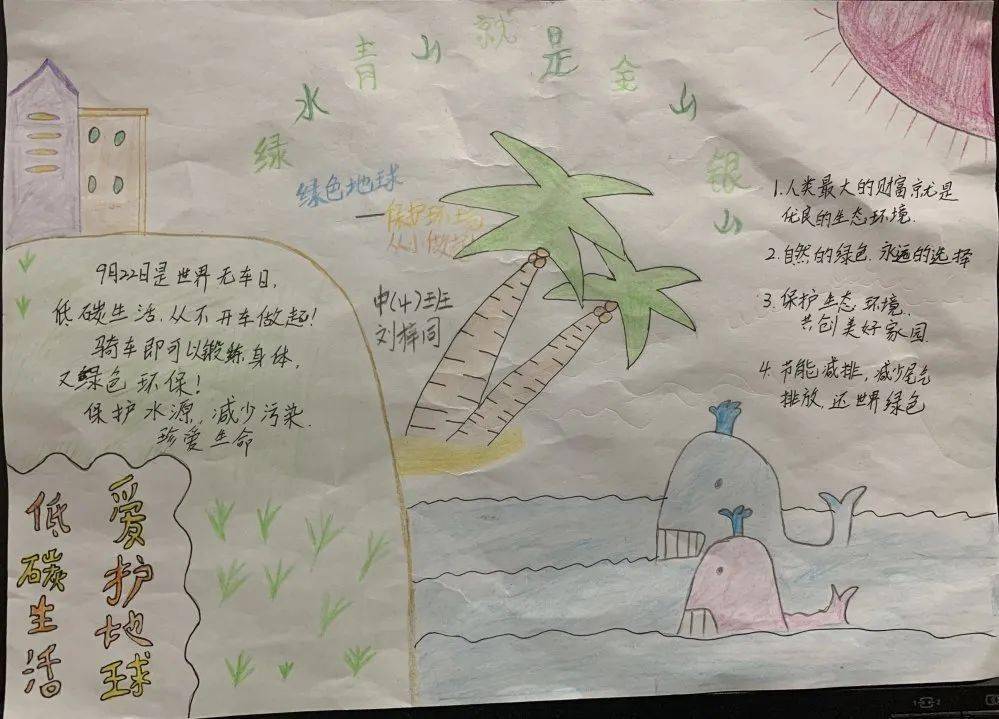 绿水青山就是金山银山
绿色地球
—保护环境
从小做起
中(4)班
刘梓同
9月22日是世界无车日,
低碳生活,从不开车做起!
骑车即可以锻练身体,
又绿色环保!
保护水源,减少污染.
珍爱生命
爱护地球
低碳生活
1.人类最大的财富就是
优良的生态环境.
2.自然的绿色,永远的选择
3.保护生态环境.
共创美好家园.
4.节能减排,减少尾气
排放,还世界绿色